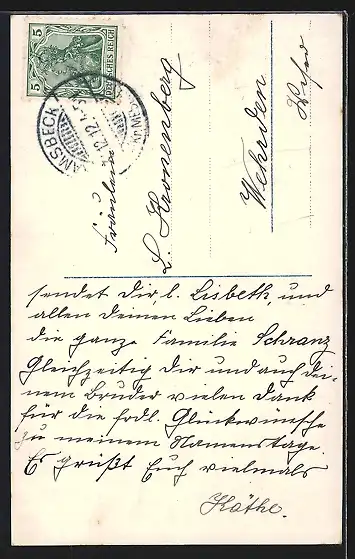 5 5
DEUTSCHES REICH
RAMSBECK
12.12
Fräulein
L. Kronenberg
Wehrden
Weser
sendet Dir l. Lisbeth, und
allen Deinen Lieben
die ganze Familie Schranz
Gleichzeitig Dir und auch Dei-
nem Bruder vielen Dank
für die frdl. Glückwünsche
zu meinem Namenstage.
Es grüßt Euch vielmals
Käthe.